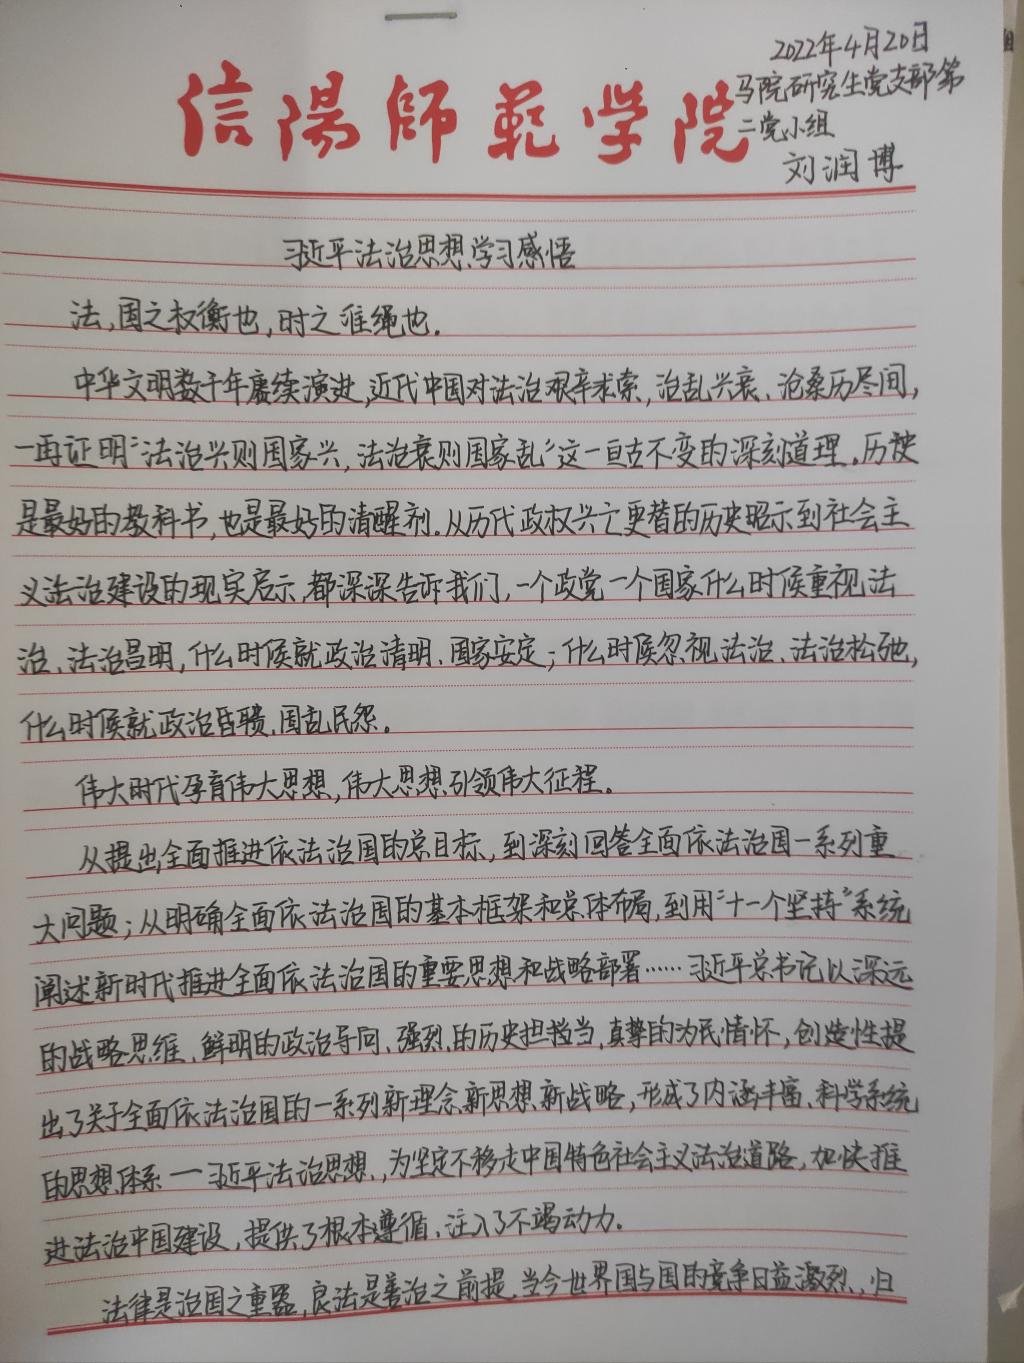 2022年4月20日
信陽師範学院
马院研究生党支部第
二党小组
刘润博
习近平法治思想学习感悟
法,国之权衡也,时之准绳也.
中华文明数千年赓续演进,近代中国对法治艰辛求索,治乱兴衰、沧桑历尽间,
一再证明“法治兴则国家兴,法治衰则国家乱”这一亘古不变的深刻道理。历史
是最好的教科书,也是最好的清醒剂.从历代政权兴亡更替的历史昭示到社会主
义法治建设的现实启示,都深深告诉我们,一个政党一个国家什么时候重视法
治、法治昌明,什么时候就政治清明、国家安定;什么时候忽视法治、法治松弛,
什么时候就政治昏聩、国乱民怨。
伟大时代孕育伟大思想,伟大思想引领伟大征程。
从提出全面推进依法治国的总目标,到深刻回答全面依法治国一系列重
大问题;从明确全面依法治国的基本框架和总体布局,到用“十一个坚持”系统
阐述新时代推进全面依法治国的重要思想和战略部署……习近平总书记以深远
的战略思维、鲜明的政治导向、强烈的历史担当,真挚的为民情怀,创造性提
出了关于全面依法治国的一系列新理念新思想新战略,形成了内涵丰富、科学系统
的思想体系一习近平法治思想,为坚定不移走中国特色社会主义法治道路,加快推
进法治中国建设,提供了根本遵循、注入了不竭动力。
法律是治国之重器,良法是善治之前提.当今世界国与国的竞争日益激烈,归